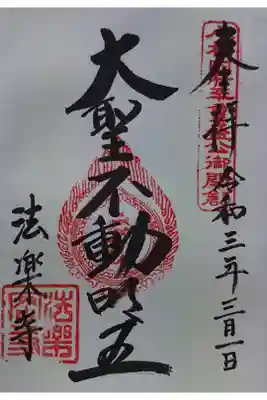 奉拝 令和三年三月一日
大聖不動明王
法楽寺